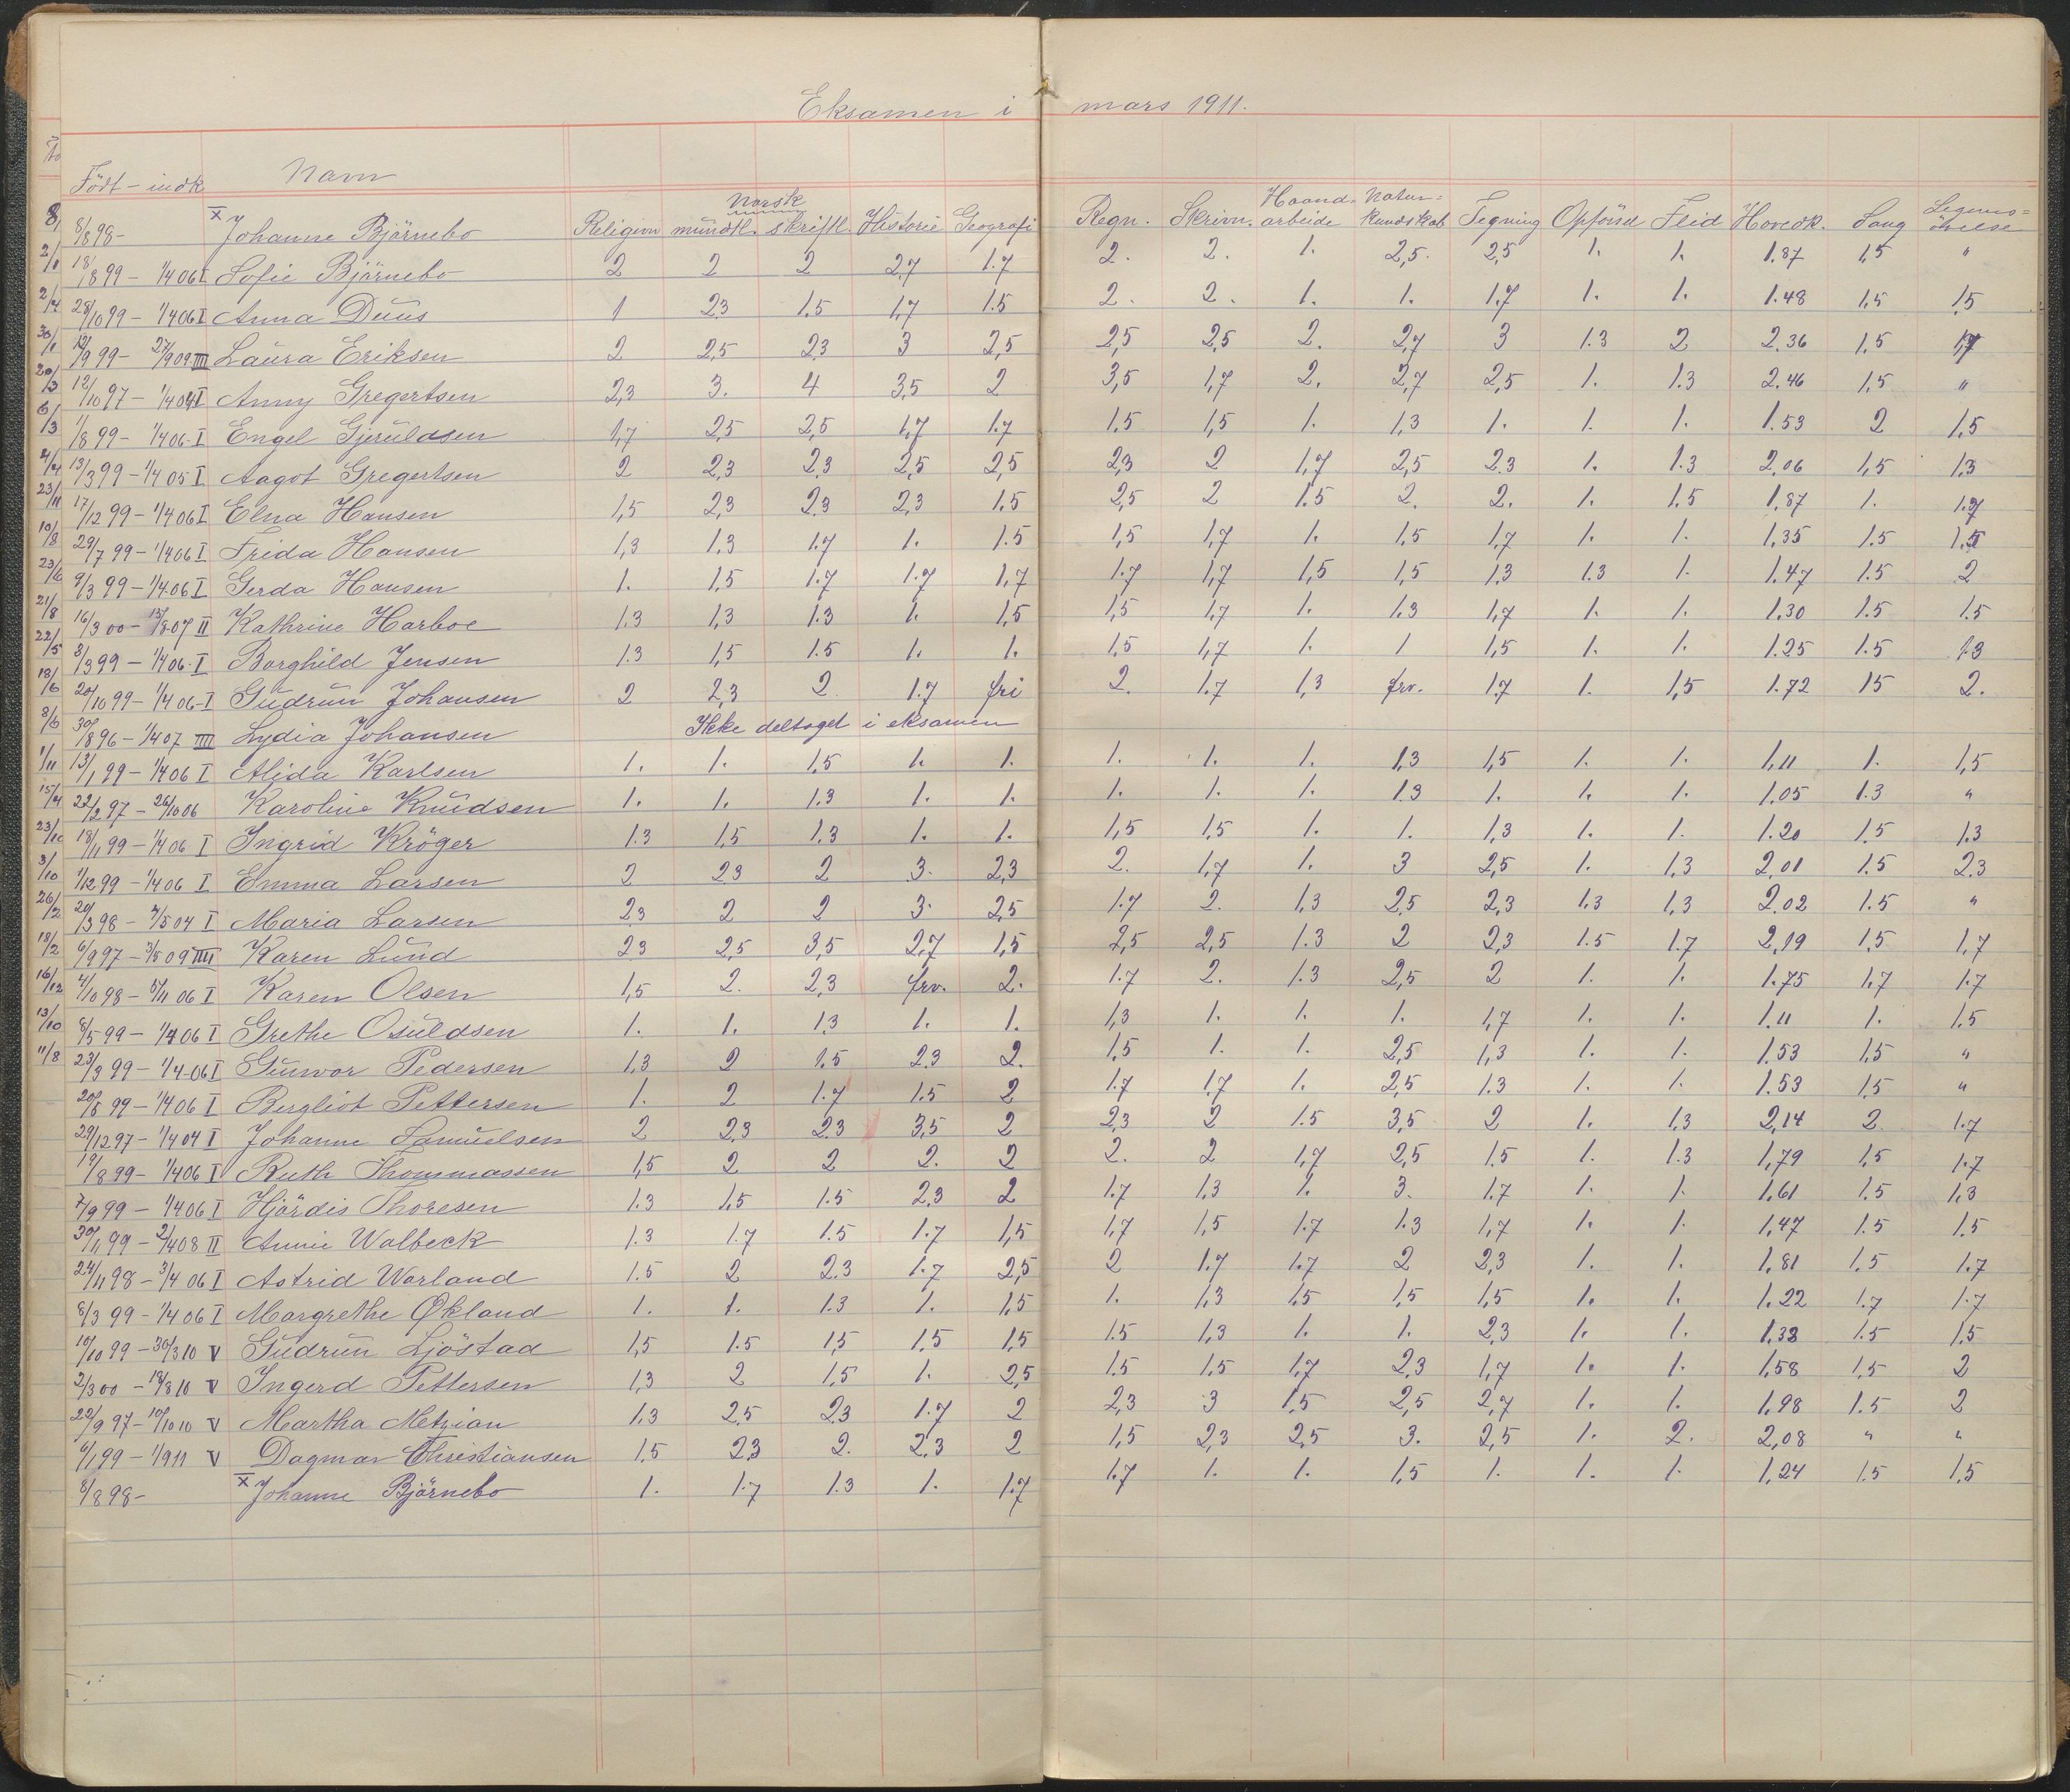 Eksamen i mars 1911.
Født - indk. Navn Religion Norsk mundtl. skriftl. Historie Geografi Regn. Skrivn. Haandarbeide Naturkundskab Tegning Opførsel Flid Hovedk. Sang Legemsøvelse
8/8 98 - x Johanne Björnebo
18/8 99 - 1/4 06 I Sofie Björnebo 2 2 2 2,7 1.7 2. 2. 1. 2,5. 2,5 1. 1. 1.87 1,5 "
28/10 99 - 1/4 06 I Anna Duus 1 2.3 1.5 1,7 1.5 2. 2. 1. 1. 1,7 1. 1. 1.48 1,5 1,5
12/9 99 - 27/9 09 III Laura Eriksen 2 2,5 2.3 3 2,5 2,5 2,5 2. 2,7 3 1.3 2 2.36 1,5 1,7
12/10 97 - 1/4 04 I Anny Gregertsen 2,3 3. 4 3,5 2 3,5 1,7 2. 2,7 2,5 1. 1.3 2.46 1,5 "
11/8 99 - 1/4 06 I Engel Gjeruldsen 1,7 2,5 2,5 1,7 1.7 1.5 1,5 1. 1,3 1. 1. 1. 1.53 2 1,5
13/3 99 - 1/4 05 I Aagot Gregertsen 2 2,3 2.3 2,5 2,5 2,3 2 1,7 2,5 2.3 1. 1.3 2,06 1,5 1,3
17/12 99 - 1/4 06 I Elna Hansen 1,5 2,3 2.3 2,3 1.5 2,5 2 1.5 2. 2. 1. 1.5 1,87 1. 1.7
29/7 99 - 1/4 06 I Frida Hansen 1,3 1.3 1.7 1. 1.5 1,5 1,7 1. 1.5 1,7 1. 1. 1,35 1.5 1,5
9/3 99 - 1/4 06 I Gerda Hansen 1. 1,5 1.7 1.7 1,7 1.7 1,7 1,5 1,5 1,3 1.3 1. 1,47 1.5 2
16/3 00 - 15/8 07 II Kathrine Harboe 1.3 1,3 1.3 1. 1,5 1,5 1,7 1. 1.3 1,7 1. 1. 1,30 1.5 1.5
8/3 99 - 1/4 06 I Borghild Jensen 1.3 1,5 1.5 1. 1. 1,5 1,7 1. 1 1,5 1. 1. 1.25 1.5 1.3
20/10 99 - 1/4 06 I Gudrun Johansen 2 2,3 2. 1.7 fri 2. 1.7 1,3 frv. 1.7 1. 1,5 1.72 15 2.
30/8 96 - 1/4 07 IIII Lydia Johansen Ikke deltaget i eksamen
13/1 99 - 1/4 06 I Alida Karlsen 1. 1. 1,5 1. 1. 1. 1. 1. 1,3 1,5 1. 1. 1,11 1. 1,5
22/2 97 - 26/10 06 Karoline Knudsen 1. 1. 1.3 1. 1. 1. 1. 1. 1.3 1. 1. 1. 1.05 1.3 "
18/11 99 - 1/4 06 I Ingrid Kröger 1.3 1,5 1.3 1. 1. 1,5 1.5 1. 1. 1,3 1. 1. 1.20 1.5 1.3
1/12 99 - 1/4 06 I Emma Larsen 2 2.3 2 3. 2,3 2. 1,7 1. 3 2,5 1. 1,3 2,01 1.5 2.3
20/3 98 - 4/5 04 I Maria Larsen 2.3 2 2 3. 2,5 1.7 2. 1,3 2.5 2,3 1,3 1,3 2.02 1.5 "
6/9 97 - 3/5 09 IIII Karen Lund 2.3 2,5 3,5 2,7 1,5 2,5 2,5 1.3 2 2,3 1.5 1.7 2,19 1,5 1,7
4/10 98 - 5/11 06 I Karen Olsen 1,5 2. 2,3 frv. 2. 1.7 2. 1.3 2,5 2 1. 1. 1.75 1,7 1.7
8/5 99 - 1/4 06 I Grethe Osuldsen 1. 1. 1.3 1. 1. 1,3 1. 1. 1. 1,7 1. 1. 1.11 1. 1.5
23/3 99 - 1/4 06 I Gunvor Pedersen 1,3 2 1.5 2.3 2. 1.5 1. 1. 2,5 1,3 1. 1. 1.53 1,5 "
20/8 99 - 1/4 06 I Bergliot Pettersen 1. 2 1.7 1.5 2 1.7 1.7 1. 2,5 1.3 1. 1. 1.53 1,5 "
29/12 97 - 1/4 04 I Johanne Samuelsen 2 2.3 2.3 3,5 2 2,3 2 1.5 3,5 2 1. 1,3 2,14 2. 1.7
19/8 99 - 1/4 06 I Ruth Thommassen 1,5 2 2 2. 2 2. 2 1,7 2,5 1.5 1. 1.3 1,79 1,5 1.7
7/9 99 - 1/4 06 I Hjördis Thoresen 1.3 1,5 1.5 2.3 2 1.7 1,3 1. 3. 1.7 1. 1. 1,61 1.5 1,3
30/11 99 - 2/4 08 II Annie Walbeck 1.3 1.7 1.5 1.7 1,5 1,7 1,5 1.7 1.3 1,7 1. 1. 1,47 1.5 1.5
24/11 98 - 3/4 06 I Astrid Worland 1.5 2 2.3 1.7 2,5 2 1.7 1.7 2 2.3 1. 1. 1,81 1.5 1.7
8/3 99 - 1/4 06 I Margrethe Økland 1. 1. 1.3 1. 1,5 1. 1,3 1.5 1,5 1,5 1. 1. 1.22 1.7 1.7
10/10 99 - 30/3 10 V Gudrun Ljöstad 1,5 1.5 1,5 1,5 1,5 1.5 1,3 1. 1. 2,3 1. 1. 1.38 1.5 1,5
2/3 00 - 18/8 10 V Ingerd Pettersen 1,3 2 1,5 1. 2,5 1.5 1.5 1,7 2,3 1,7 1. 1. 1,58 1,5 2
22/9 97 - 10/10 10 V Martha Metzian 1.3 2.5 2.3 1.7 2 2,3 3 1,5 2,5 2,7 1. 1. 1,98 1.5 2
6/1 99 - 1/9 11 V Dagmar Christiansen 1,5 2.3 2. 2.3 2 1,5 2,3 2,5 3. 2,5 1. 2. 2,08 " "
8/8 98 - x Johanne Björnebo 1. 1.7 1.3 1. 1.7 1.7 1. 1. 1,5 1. 1. 1. 1,24 1.5 1,5
8/
2/1
2/4
30/1
20/3
6/3
4/4
23/11
10/8
23/6
21/8
22/5
18/6
8/6
1/11
15/4
23/10
3/10
26/2
18/2
16/12
13/10
11/8